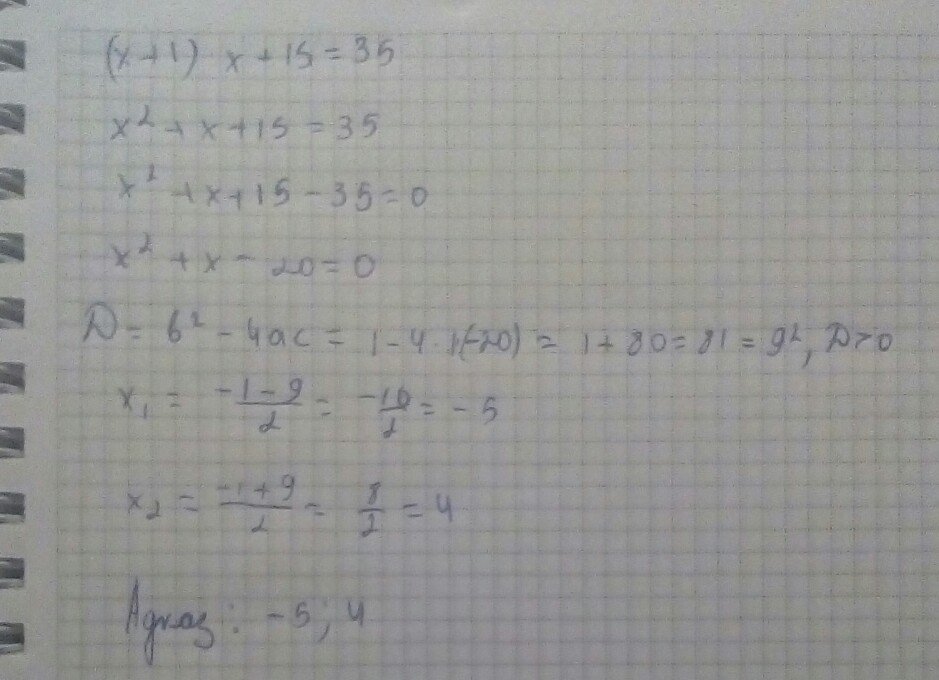 (x+1) x + 15 = 35
x² + x + 15 = 35
x² + x + 15 - 35 = 0
x² + x - 20 = 0
D = b² - 4ac = 1 - 4 · 1(-20) = 1 + 80 = 81 = 9², D > 0
x₁ = (-1-9)/2 = -10/2 = -5
x₂ = (-1+9)/2 = 8/2 = 4
Адказ: -5; 4